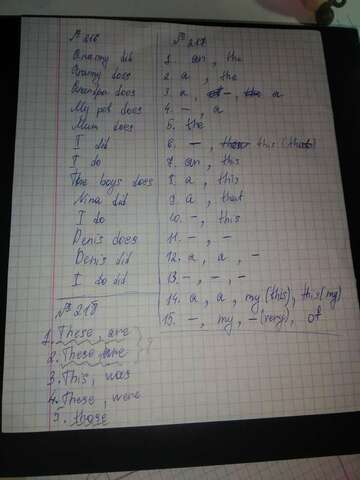 № 216
Granny did
Granny does
Grandpa does
My pet does
Mum does
I did
I do
The boys does
Nina did
I do
Denis does
Denis did
I do did
№ 217
1. an, the
2. a, the
3. a, -, a
4. -, a
5. the
6. -, this (that)
7. an, this
8. a, this
9. a, that
10. -, this
11. -, -
12. a, a, -
13. -, -, -
14. a, a, my (this), this (my)
15. -, my, - (very), of
№ 218
1. These, are
2. These are
3. This, was
4. These, were
5. those